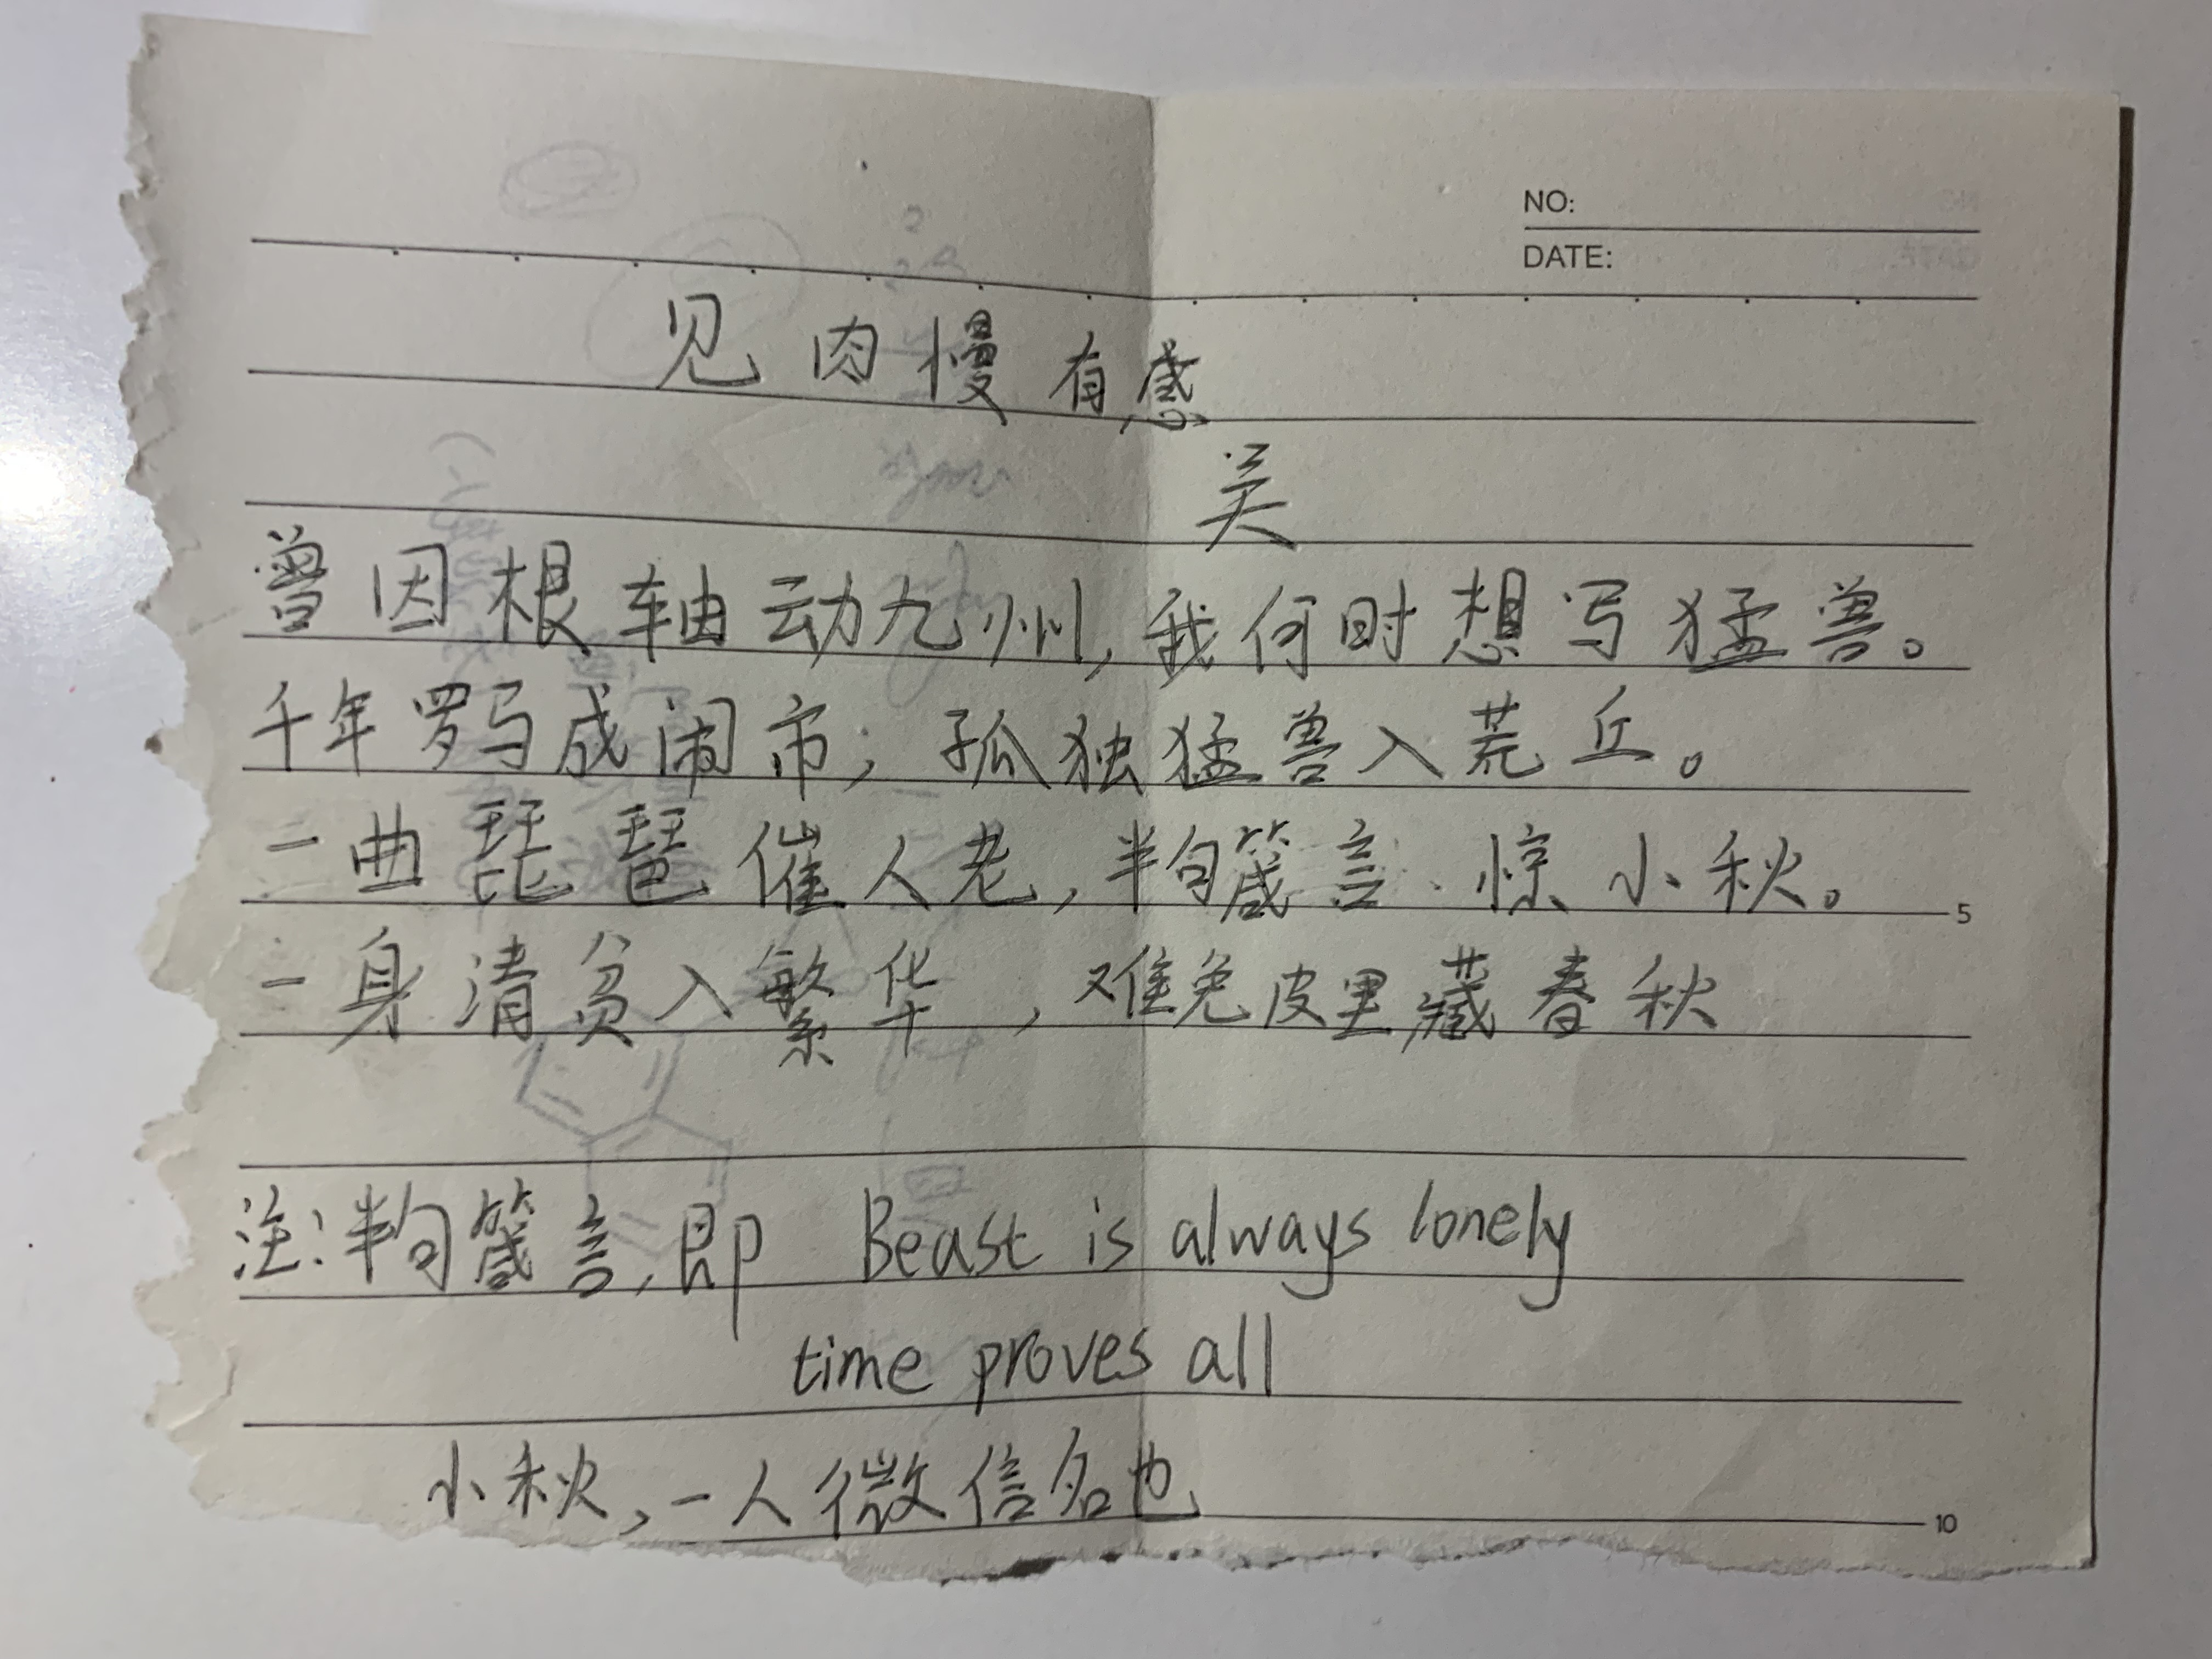 NO:
DATE:
见肉慢有感
关
曾因根轴动九州,我何时想写猛兽。
千年罗马成闹市;孤独猛兽入荒丘。
一曲琵琶催人老,半句箴言、惊小秋。
一身清贫入繁华,难免皮里藏春秋
5
注:半句箴言,即 Beast is always lonely
time proves all
小秋,一人微信名也
10